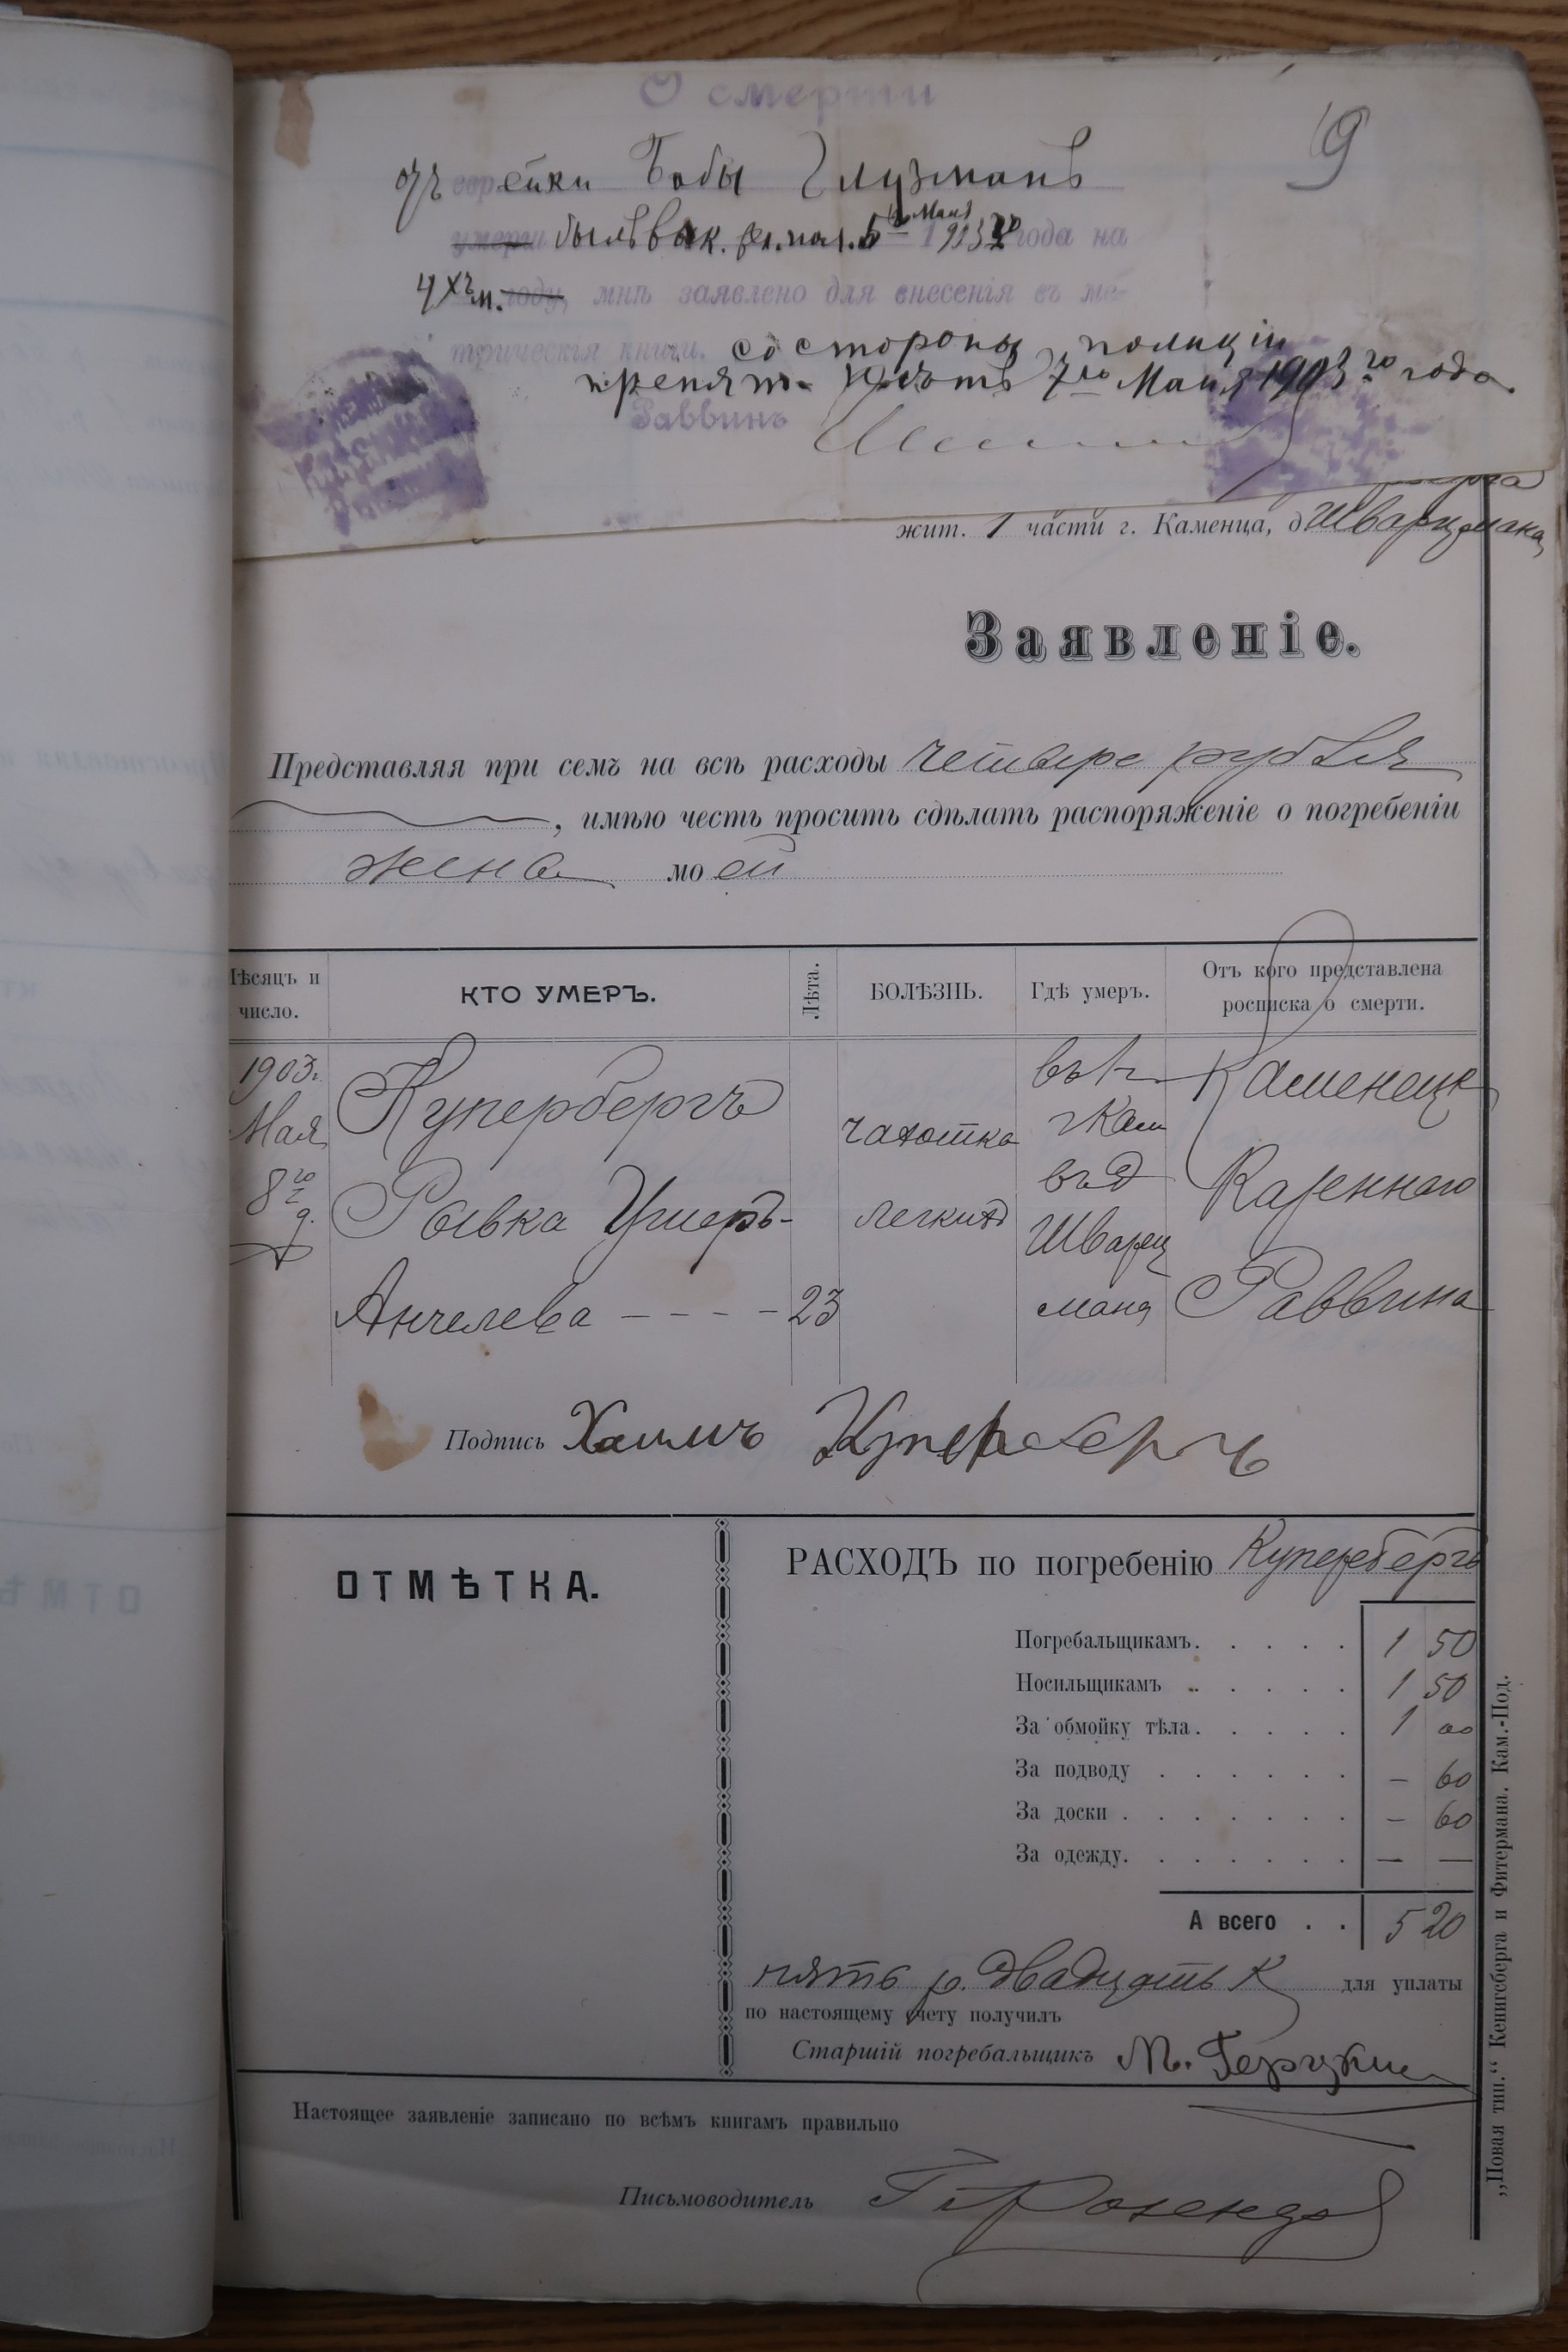 О смерти
9
еврейки Бобы Глузманъ
умерш 5го Мая 1903 года на
4хъ м. году, мнѣ заявлено для внесенія въ ме-
трическія книги. со стороны полиціи
7го Мая 1903го года.
Раввинъ
жит. 1 части г. Каменца, д Шварцмана
Заявленіе.
Представляя при семъ на всѣ расходы четыре рубля
, имѣю честь просить сдѣлать распоряженіе о погребеніи
жена моей
Мѣсяцъ и число. КТО УМЕРЪ. Лѣта. БОЛѢЗНЬ. Гдѣ умеръ. Отъ кого представлена росписка о смерти.
1903г. Купербергъ въ г. Каменецк
Мая чахотка гКам
8го Рывка Ушеръ- легкихъ въ д Казеннаго
д. Шварц
Анчелева - - - - 23 мана Раввина
Подпись Хаимъ Купербергъ
ОТМѢТКА.
РАСХОДЪ по погребенію Купербергъ
Погребальщикамъ. . . . . 1 50
Носильщикамъ . . . . . 1 50
За обмойку тѣла. . . . . 1 00
За подводу . . . . . . – 60
За доски . . . . . . . – 60
За одежду. . . . . . . — —
А всего . . 5 20
пять р. двадцать к для уплаты
по настоящему счету получилъ
Старшій погребальщикъ М.
Настоящее заявленіе записано по всѣмъ книгамъ правильно
Письмоводитель
„Новая тип.“ Кенигсберга и Фитермана. Кам.-Под.